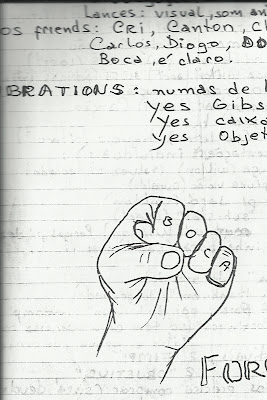 Lances: visual, som an
os friends: CRi, CANTON, C
Carlos, Diogo,
Boca, é claro.
BRATIONS: numas de
Yes Gibs
Yes caixa
Yes Objet
B O C A
FOR